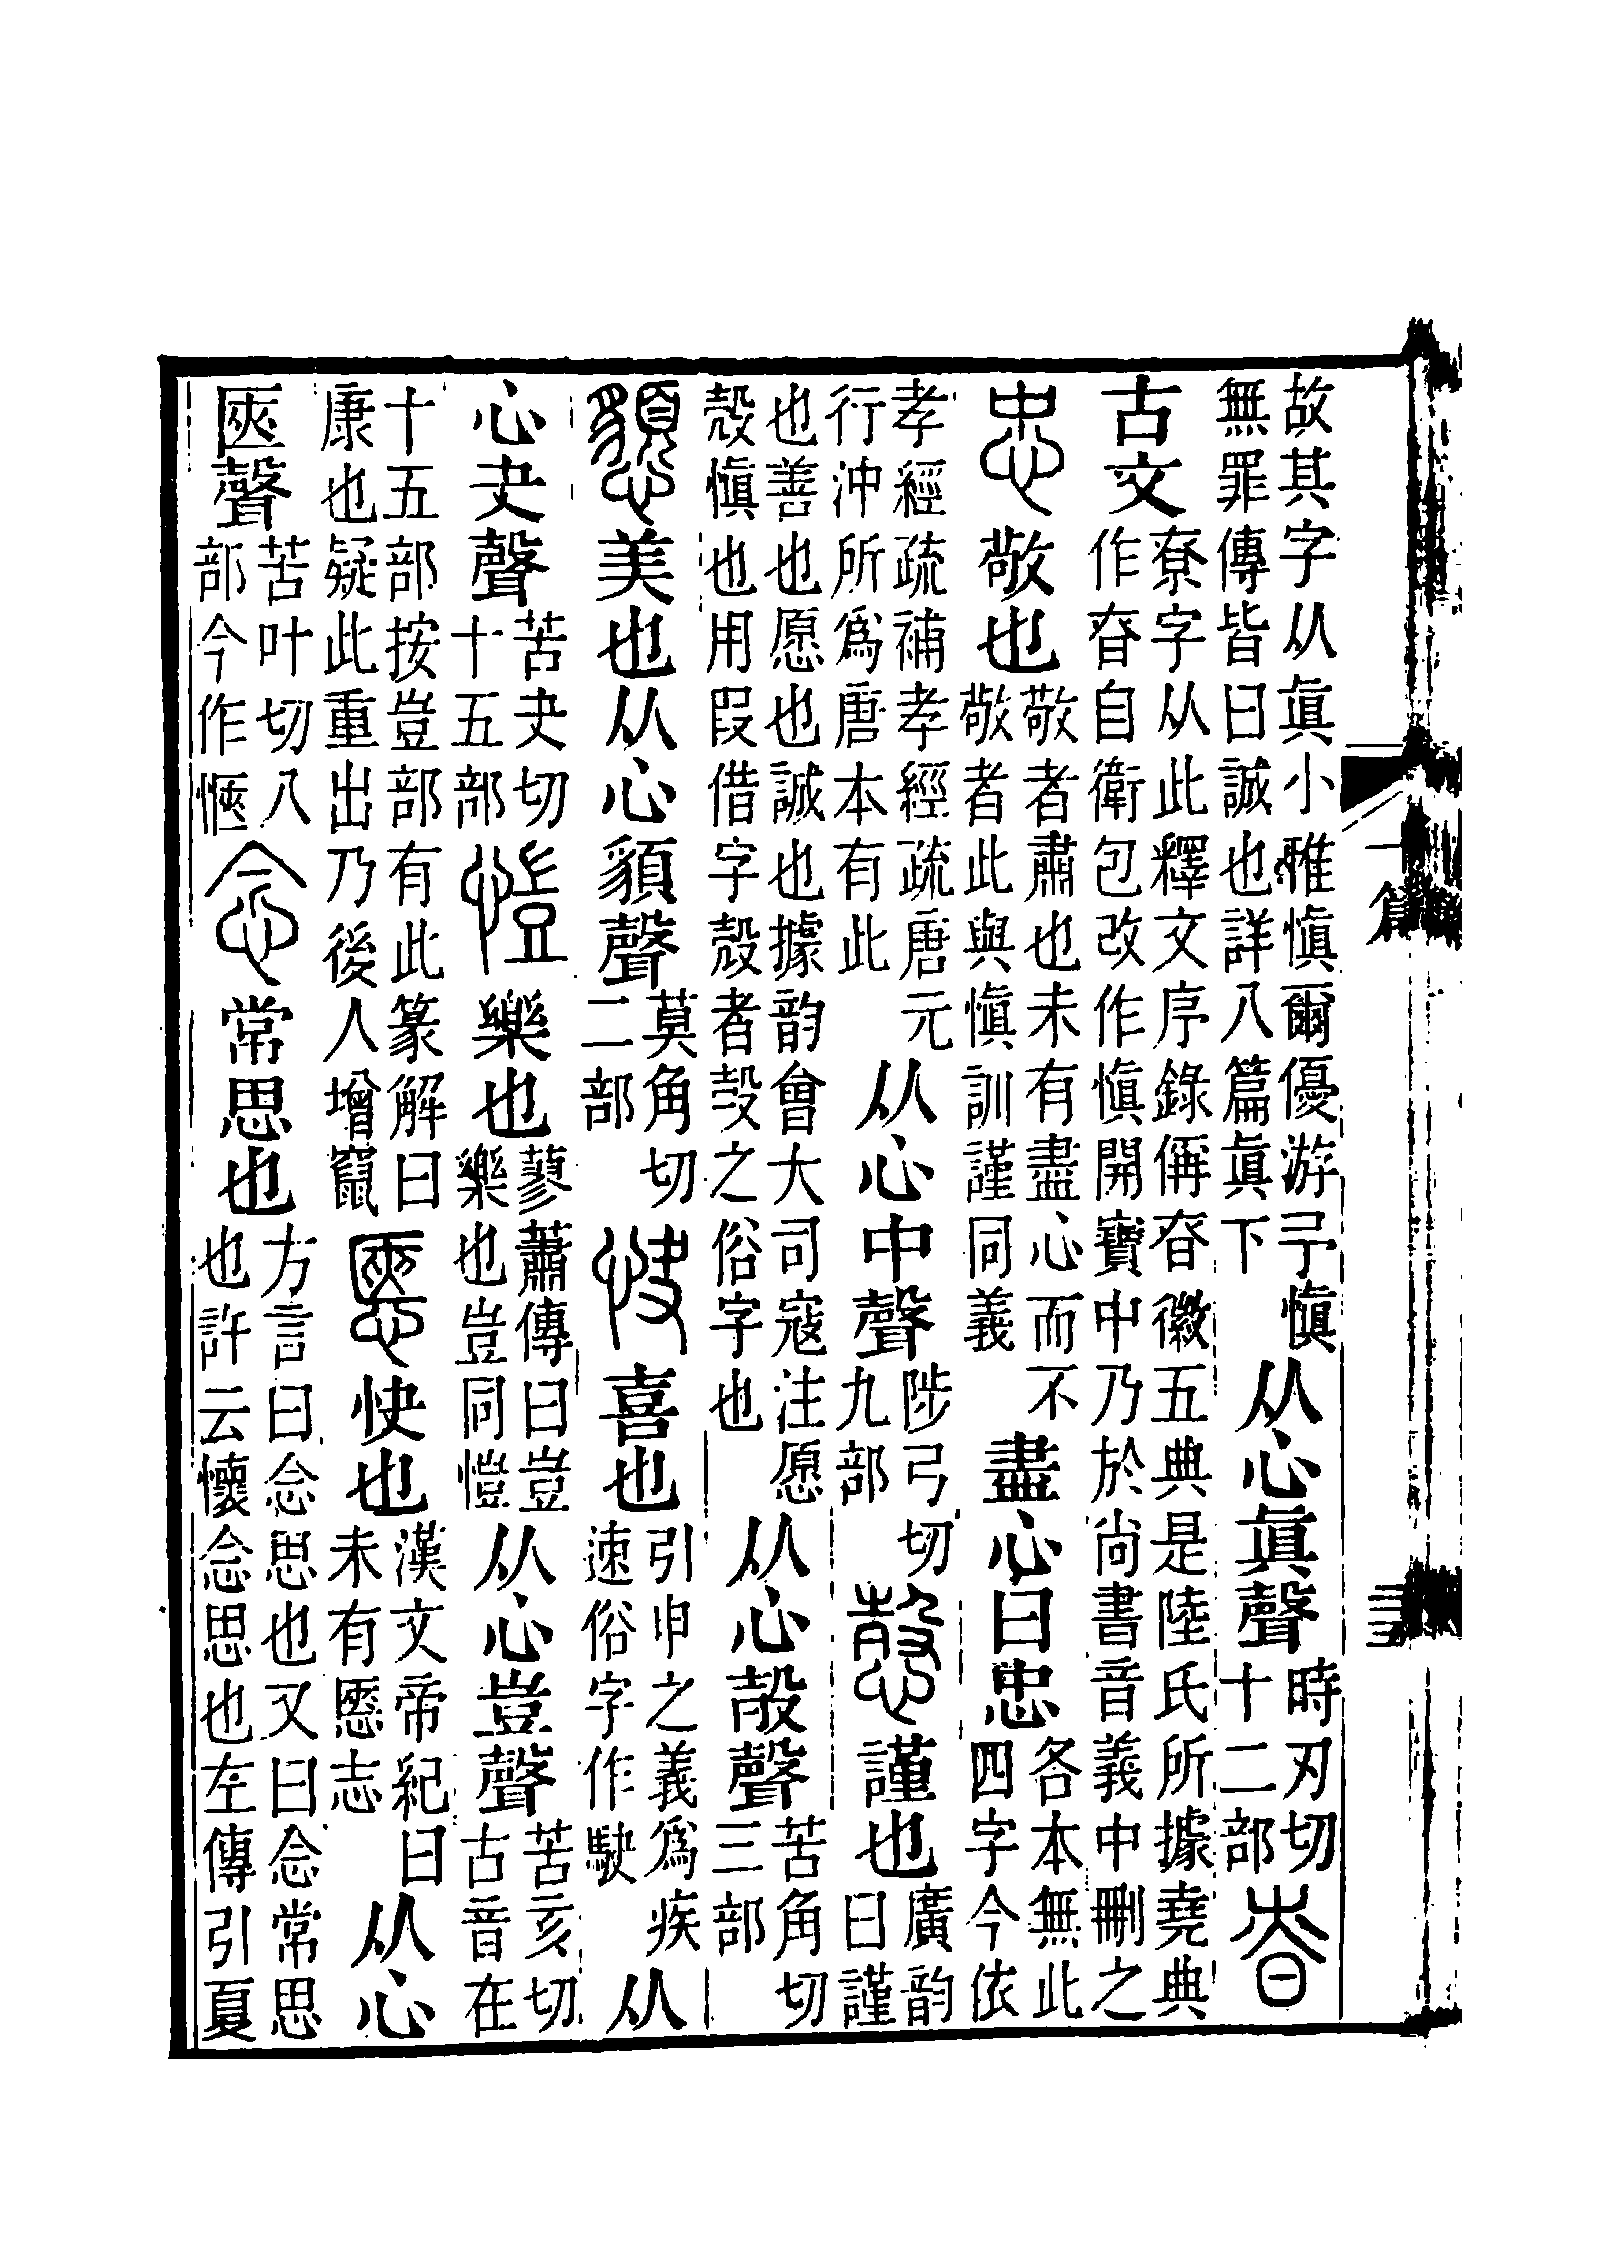 故其字从眞小雅愼爾優游予愼無罪傳皆曰誠也詳八篇眞下从心眞聲時刃切十二部昚
古文尞字从此釋文序錄偁昚徽五典是陸氏所據堯典作昚自衛包改作愼開寶中乃於尚書音義中刪之
忠敬也敬者肅也未有盡心而不敬者此與愼訓謹同義盡心曰忠各本無此四字今依
孝經疏補孝經疏唐元行沖所爲唐本有此从心中聲陟弓切九部愨謹也廣韵曰謹
也善也愿也誠也據韵會大司寇注愿殼愼也用叚借字殼者㱿之俗字也从心㱿聲苦角切三部
美也从心䫉聲莫角切二部快喜也引申之義爲疾速俗字作駃从
心夬聲苦夬切十五部愷樂也蓼蕭傳曰豈樂也豈同愷从心豈聲苦亥切古音在
十五部按豈部有此篆解曰康也疑此重出乃後人增竄㥦快也漢文帝紀曰未有㥦志从心
匧聲苦叶切八部今作愜念常思也方言曰念思也又曰念常思也許云懷念思也左傳引夏